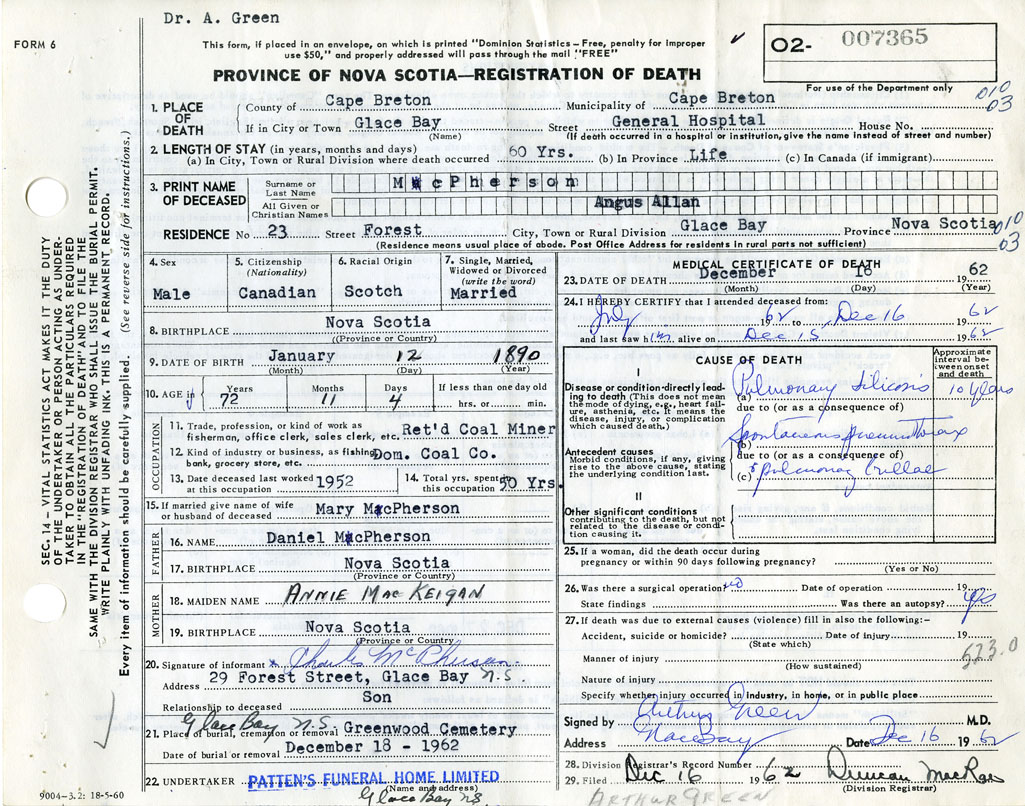 Dr. A. Green
FORM 6
This form, if placed in an envelope, on which is printed "Dominion Statistics – Free, penalty for improper
use $50," and properly addressed will pass through the mail "FREE"
O2- 007365
For use of the Department only
PROVINCE OF NOVA SCOTIA—REGISTRATION OF DEATH
010
03
1. PLACE OF DEATH County of Cape Breton Municipality of Cape Breton
If in City or Town Glace Bay Street General Hospital House No.
(Name) (If death occurred in a hospital or institution, give the name instead of street and number)
2. LENGTH OF STAY (in years, months and days)
(a) In City, Town or Rural Division where death occurred 60 Yrs. (b) In Province Life (c) In Canada (if immigrant)
3. PRINT NAME OF DECEASED Surname or Last Name MacPherson
All Given or Christian Names Angus Allan
RESIDENCE No 23 Street Forest City, Town or Rural Division Glace Bay Province Nova Scotia
010
03
(Residence means usual place of abode. Post Office Address for residents in rural parts not sufficient)
4. Sex Male
5. Citizenship (Nationality) Canadian
6. Racial Origin Scotch
7. Single, Married, Widowed or Divorced (write the word) Married
8. BIRTHPLACE Nova Scotia
(Province or Country)
9. DATE OF BIRTH January 12 1890
(Month) (Day) (Year)
10. AGE in Years 72 Months 11 Days 4 If less than one day old
hrs. or min.
OCCUPATION
11. Trade, profession, or kind of work as
fisherman, office clerk, sales clerk, etc. Ret'd Coal Miner
12. Kind of industry or business, as fishing,
bank, grocery store, etc. Dom. Coal Co.
13. Date deceased last worked at this occupation 1952
14. Total yrs. spent this occupation 50 Yrs.
15. If married give name of wife
or husband of deceased Mary MacPherson
FATHER
16. NAME Daniel MacPherson
17. BIRTHPLACE Nova Scotia
(Province or Country)
MOTHER
18. MAIDEN NAME ANNIE MacKEIGAN
19. BIRTHPLACE Nova Scotia
(Province or Country)
20. Signature of informant Charles McPherson
Address 29 Forest Street, Glace Bay N.S.
Relationship to deceased Son
Glace Bay N.S.
21. Place of burial, cremation or removal Greenwood Cemetery
Date of burial or removal December 18 - 1962
22. UNDERTAKER PATTEN'S FUNERAL HOME LIMITED
(Name and address)
Glace Bay NS
9004—3.2: 18-5-60
MEDICAL CERTIFICATE OF DEATH
23. DATE OF DEATH December 16 1962
(Month) (Day) (Year)
24. I HEREBY CERTIFY that I attended deceased from:
July 1962 to Dec 16 1962
and last saw him alive on Dec 15 1962
CAUSE OF DEATH
Approximate interval between onset and death
I
Disease or condition directly leading to death (This does not mean the mode of dying, e.g., heart failure, asthenia, etc. It means the disease, injury, or complication which caused death.)
(a) Pulmonary silicosis 10 years
due to (or as a consequence of)
(b) Spontaneous pneumothorax
due to (or as a consequence of)
(c) & pulmonary bullae
Antecedent causes
Morbid conditions, if any, giving rise to the above cause, stating the underlying condition last.
II
Other significant conditions
contributing to the death, but not related to the disease or condition causing it.
25. If a woman, did the death occur during
pregnancy or within 90 days following pregnancy?
(Yes or No)
26. Was there a surgical operation? no Date of operation 19
State findings Was there an autopsy? yes
27. If death was due to external causes (violence) fill in also the following:-
Accident, suicide or homicide? Date of injury 19
(State which)
523.0
Manner of injury
(How sustained)
Nature of injury
Specify whether injury occurred in Industry, in home, or in public place
Signed by Arthur Green M.D.
Address Glace Bay Date Dec 16 1962
28. Division Registrar's Record Number
29. Filed Dec 16 1962 Duncan MacRae
(Division Registrar)
ARTHUR GREEN
SEC. 14 – VITAL STATISTICS ACT MAKES IT THE DUTY
OF THE UNDERTAKER OR PERSON ACTING AS UNDER-
TAKER TO OBTAIN ALL THE PARTICULARS REQUIRED
IN THE "REGISTRATION OF DEATH" AND TO FILE THE
SAME WITH THE DIVISION REGISTRAR WHO SHALL ISSUE THE BURIAL PERMIT.
WRITE PLAINLY WITH UNFADING INK. THIS IS A PERMANENT RECORD.
Every item of information should be carefully supplied. (See reverse side for instructions.)